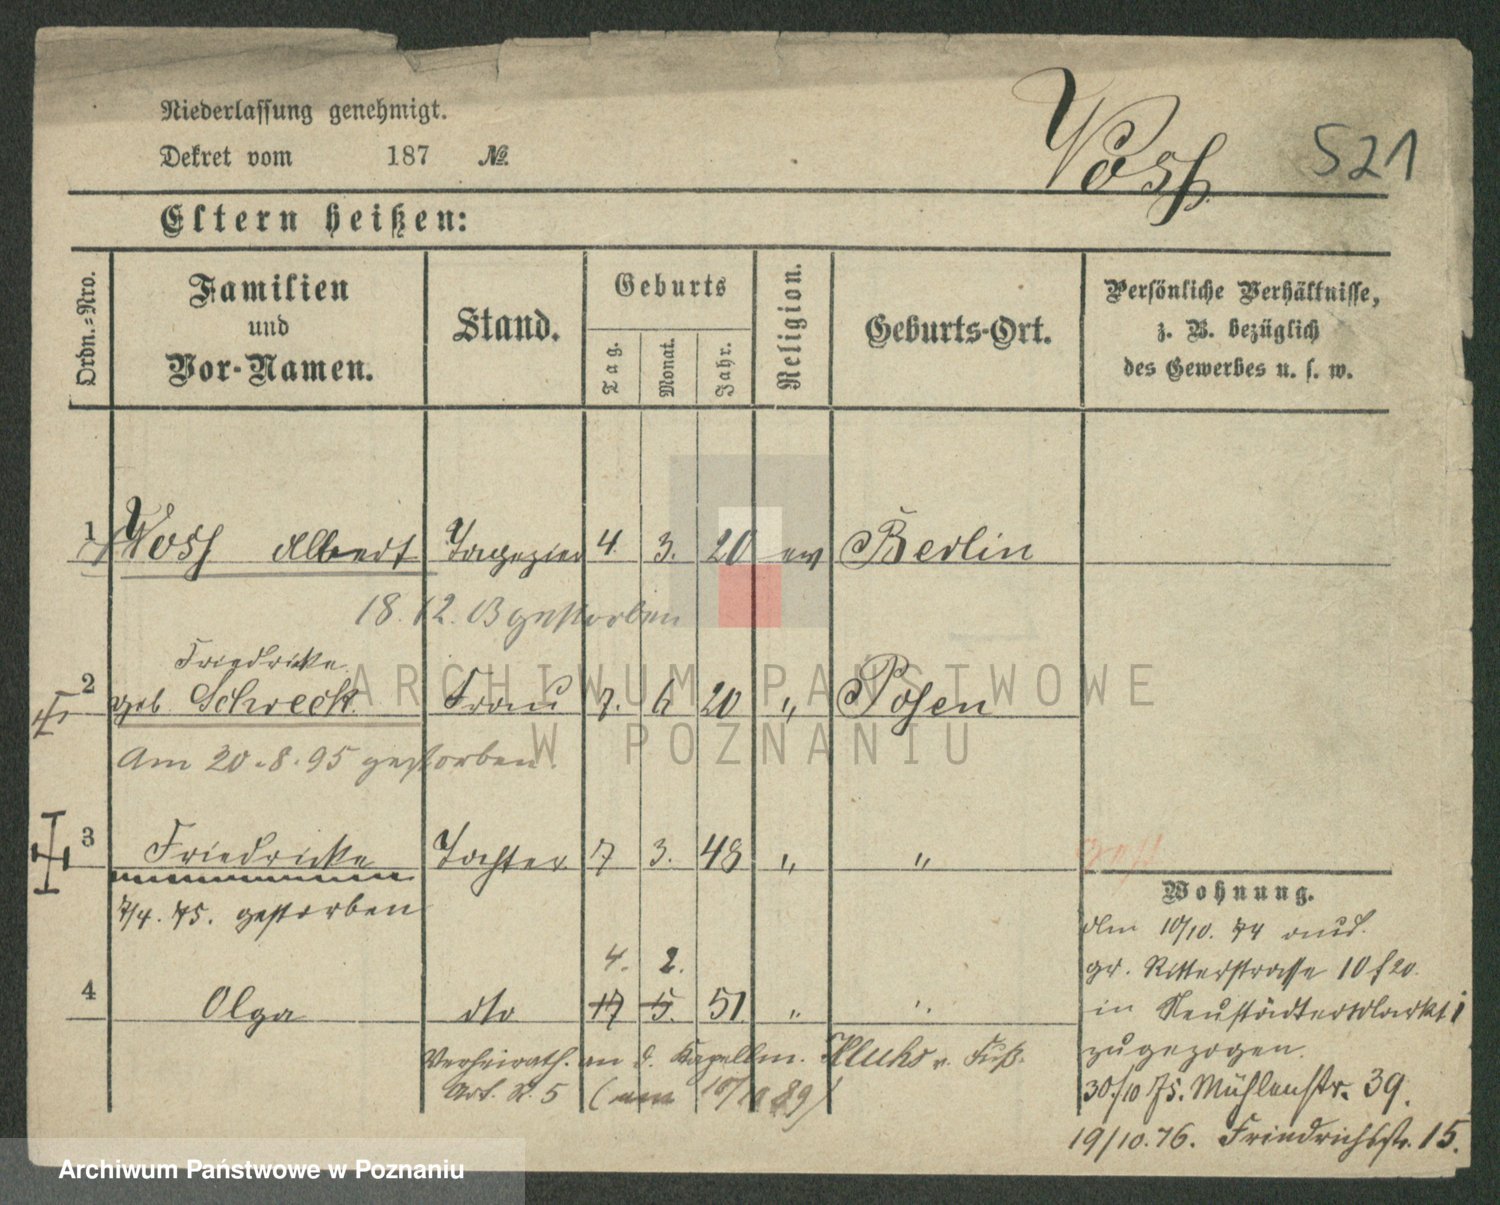 Niederlassung genehmigt.
Dekret vom 187 №.
Voss 521
Eltern heißen:
Ordn.-Nro. Familien und Vor-Namen. Stand. Geburts Tag. Monat. Jahr. Religion. Geburts-Ort. Persönliche Verhältnisse, z. B. bezüglich des Gewerbes u. s. w.
1 Voss Albert Tapezier 4. 3. 20 ev Berlin
18.12. gestorben
Friedricke
2 geb Schreck Frau 7. 6 20 " Posen
Am 20.8.95 gestorben.
3 Friedricke Tochter 7 3. 48 " "
7/4. 75. gestorben
Wohnung.
Am 10/10. 74 aus
gr. Ritterstrasse 10
in Neustädter Markt
zugezogen.
30./10 75. Mühlenstr. 39.
19/10.76. Friedrichsstr. 15.
4. 2.
4 Olga dto 17 5. 51 " "
Verheirath. an d. Kapellm. v. Fuß.
Art. R. 5 (
ARCHIWUM PAŃSTWOWE
W POZNANIU
Archiwum Państwowe w Poznaniu